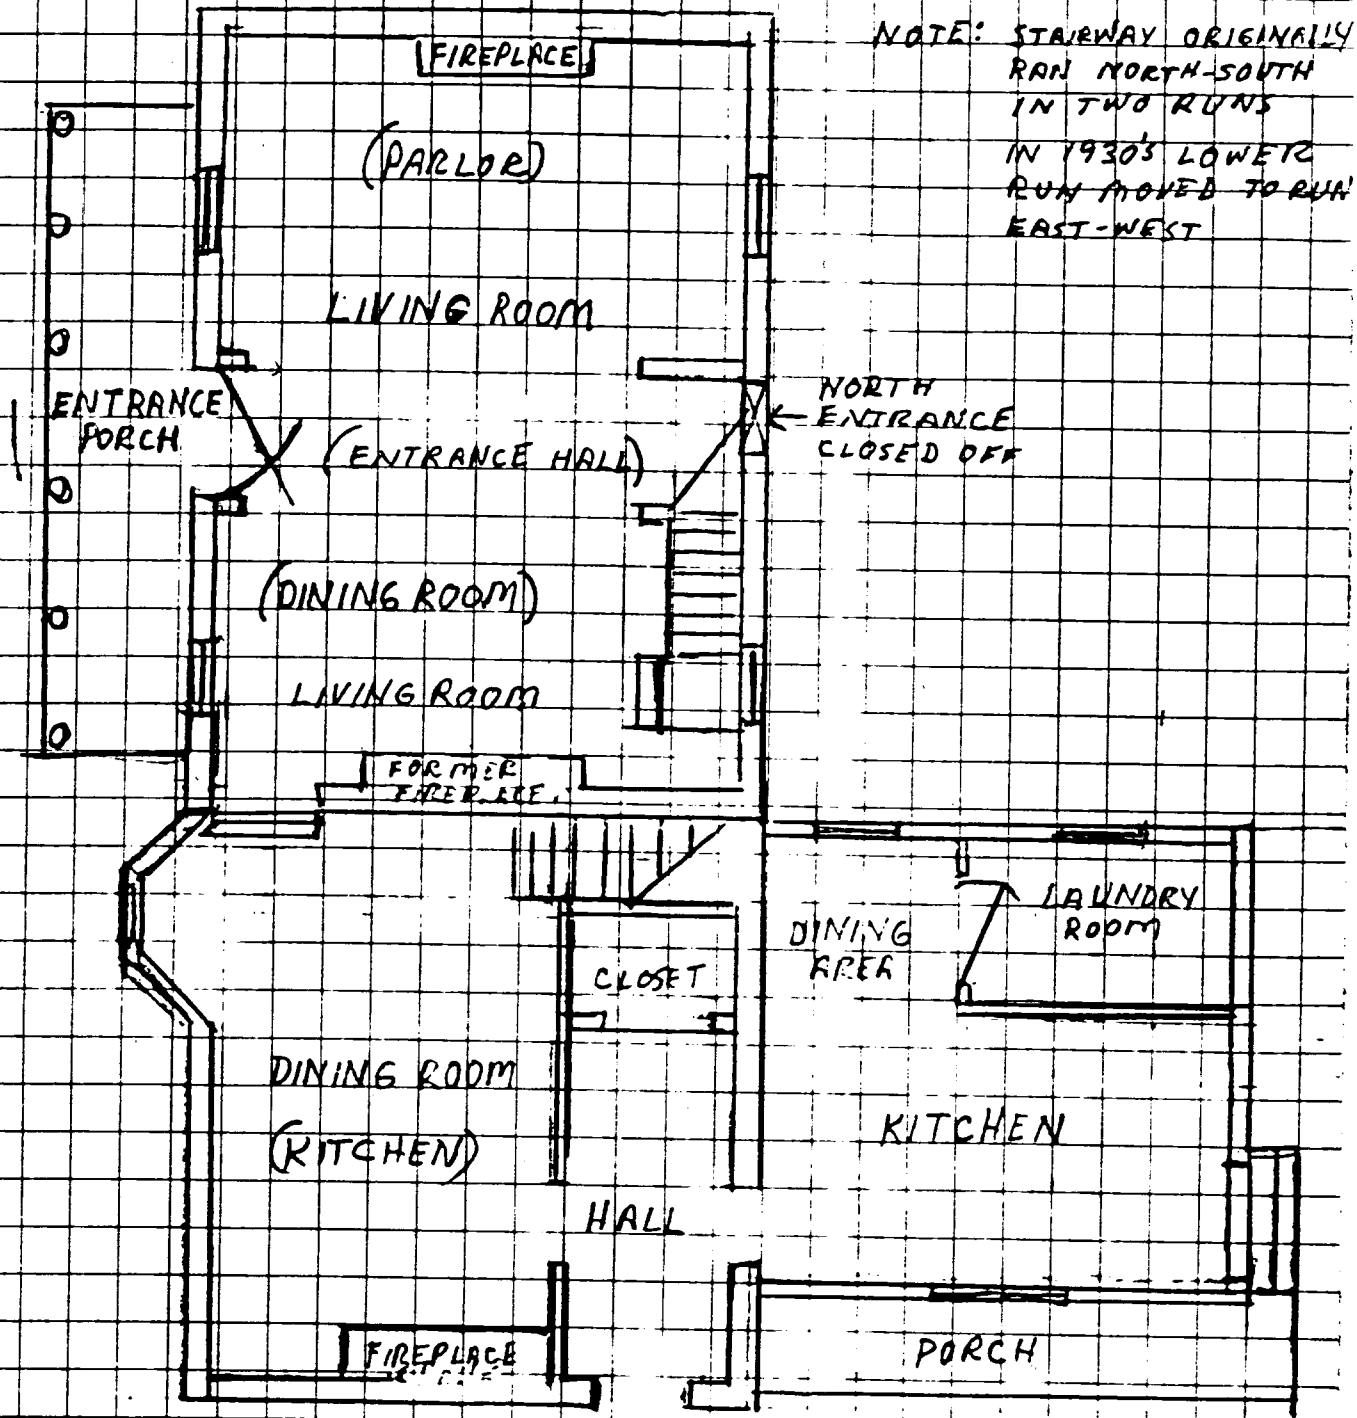 NOTE: STAIRWAY ORIGINALLY
RAN NORTH-SOUTH
IN TWO RUNS
IN 1930'S LOWER
RUN MOVED TO RUN
EAST-WEST
FIREPLACE
(PARLOR)
LIVING ROOM
ENTRANCE
PORCH
NORTH
ENTRANCE
CLOSED OFF
(ENTRANCE HALL)
(DINING ROOM)
LIVING ROOM
FORMER
FIREPLACE
LAUNDRY
ROOM
DINING
AREA
CLOSET
DINING ROOM
(KITCHEN)
KITCHEN
HALL
FIREPLACE
PORCH